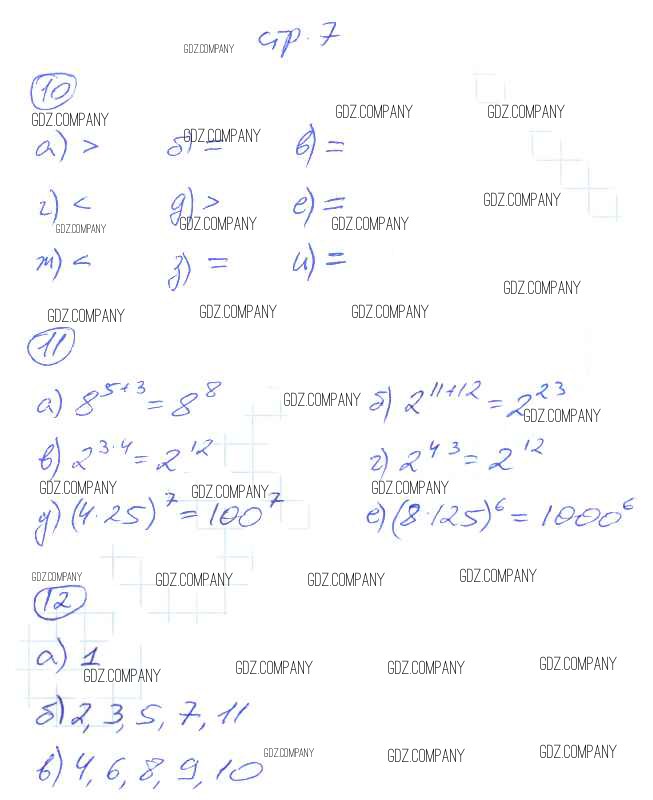 стр. 7
GDZ.COMPANY
10
GDZ.COMPANY GDZ.COMPANY GDZ.COMPANY GDZ.COMPANY
а) > б) = в) =
GDZ.COMPANY
г) < д) > е) =
GDZ.COMPANY GDZ.COMPANY GDZ.COMPANY
ж) < з) = и) =
GDZ.COMPANY
GDZ.COMPANY GDZ.COMPANY GDZ.COMPANY
11
а) 8^(5+3) = 8^8 GDZ.COMPANY б) 2^(11+12) = 2^23
GDZ.COMPANY
в) 2^(3·4) = 2^12 г) 2^(4 3) = 2^12
GDZ.COMPANY GDZ.COMPANY GDZ.COMPANY
д) (4·25)^7 = 100^7 е) (8·125)^6 = 1000^6
GDZ.COMPANY GDZ.COMPANY GDZ.COMPANY GDZ.COMPANY
12
а) 1
GDZ.COMPANY GDZ.COMPANY GDZ.COMPANY GDZ.COMPANY
б) 2, 3, 5, 7, 11
GDZ.COMPANY GDZ.COMPANY GDZ.COMPANY
в) 4, 6, 8, 9, 10